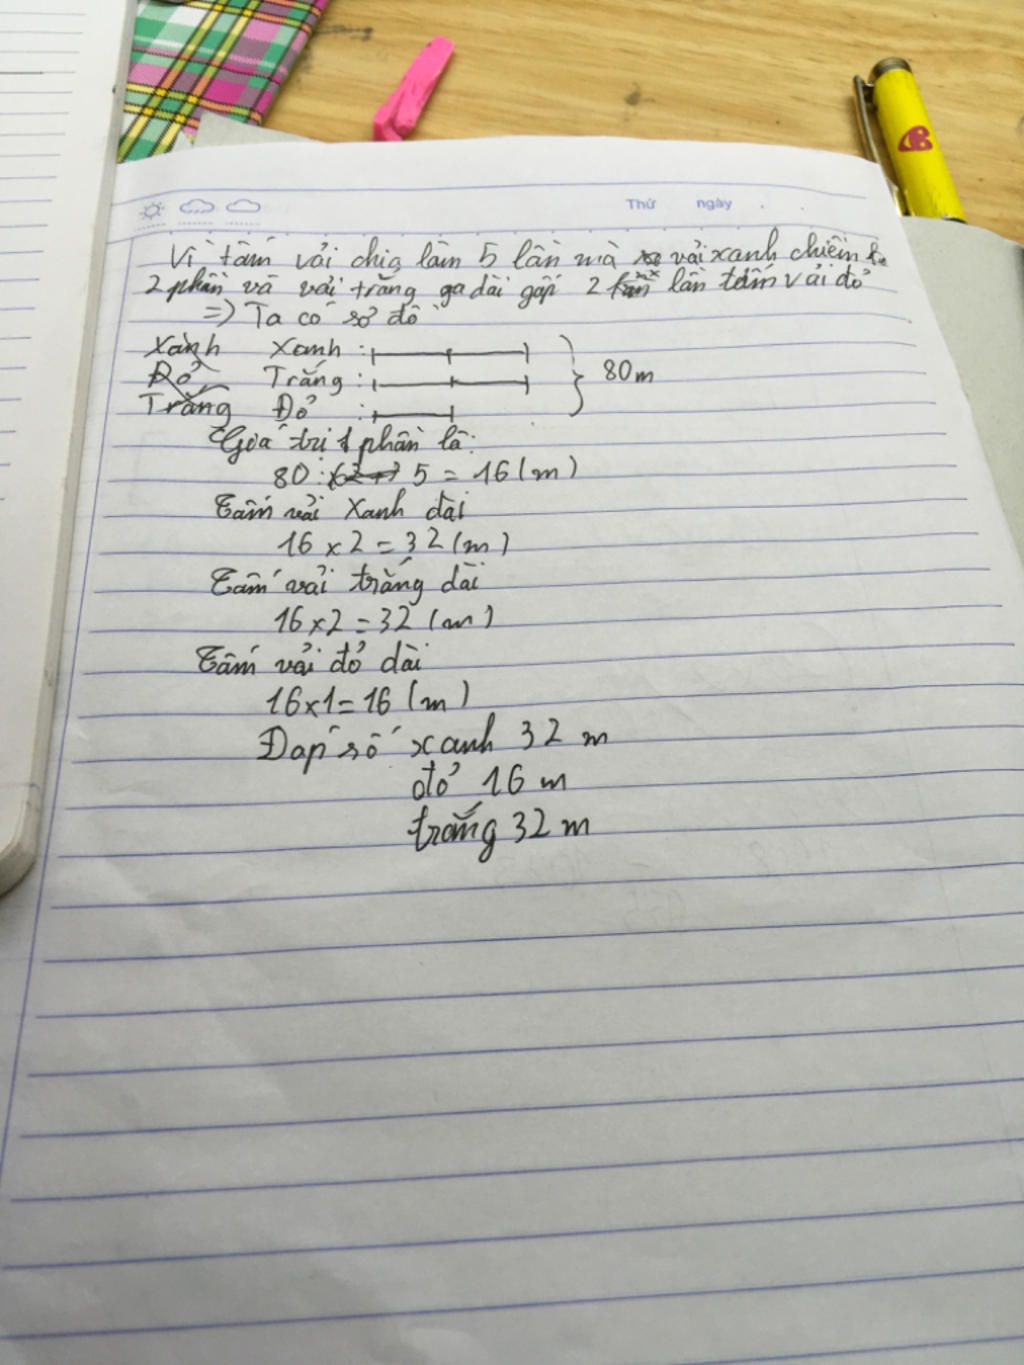 Thứ ngày
Vì tấm vải chia làm 5 lần mà vải xanh chiếm
2 phần và vải trắng dài gấp 2 lần tấm vải đỏ
=> Ta có sơ đồ
Xành Xanh :
Đỏ Trắng : 80m
Trắng Đỏ :
Giá trị 1 phần là:
80 : 5 = 16 (m)
Tấm vải xanh dài
16 x 2 = 32 (m)
Tấm vải trắng dài
16 x 2 = 32 (m)
Tấm vải đỏ dài
16 x 1 = 16 (m)
Đáp số xanh 32 m
đỏ 16 m
trắng 32 m